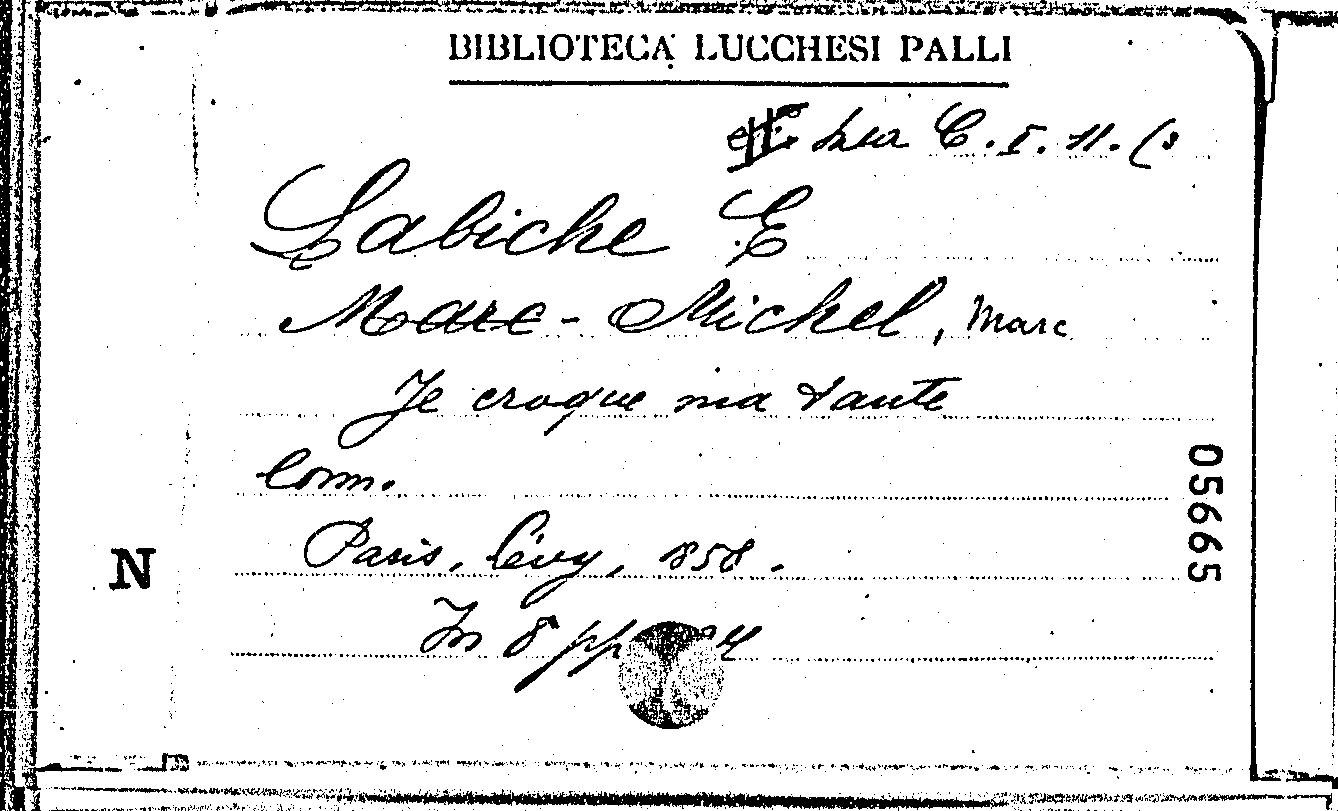 BIBLIOTECA LUCCHESI PALLI
C.I.11.(3
Labiche E
Marc-Michel, Marc
Je croque ma tante
Com.
Paris, Lévy, 858.
In 8 pp
05665
N